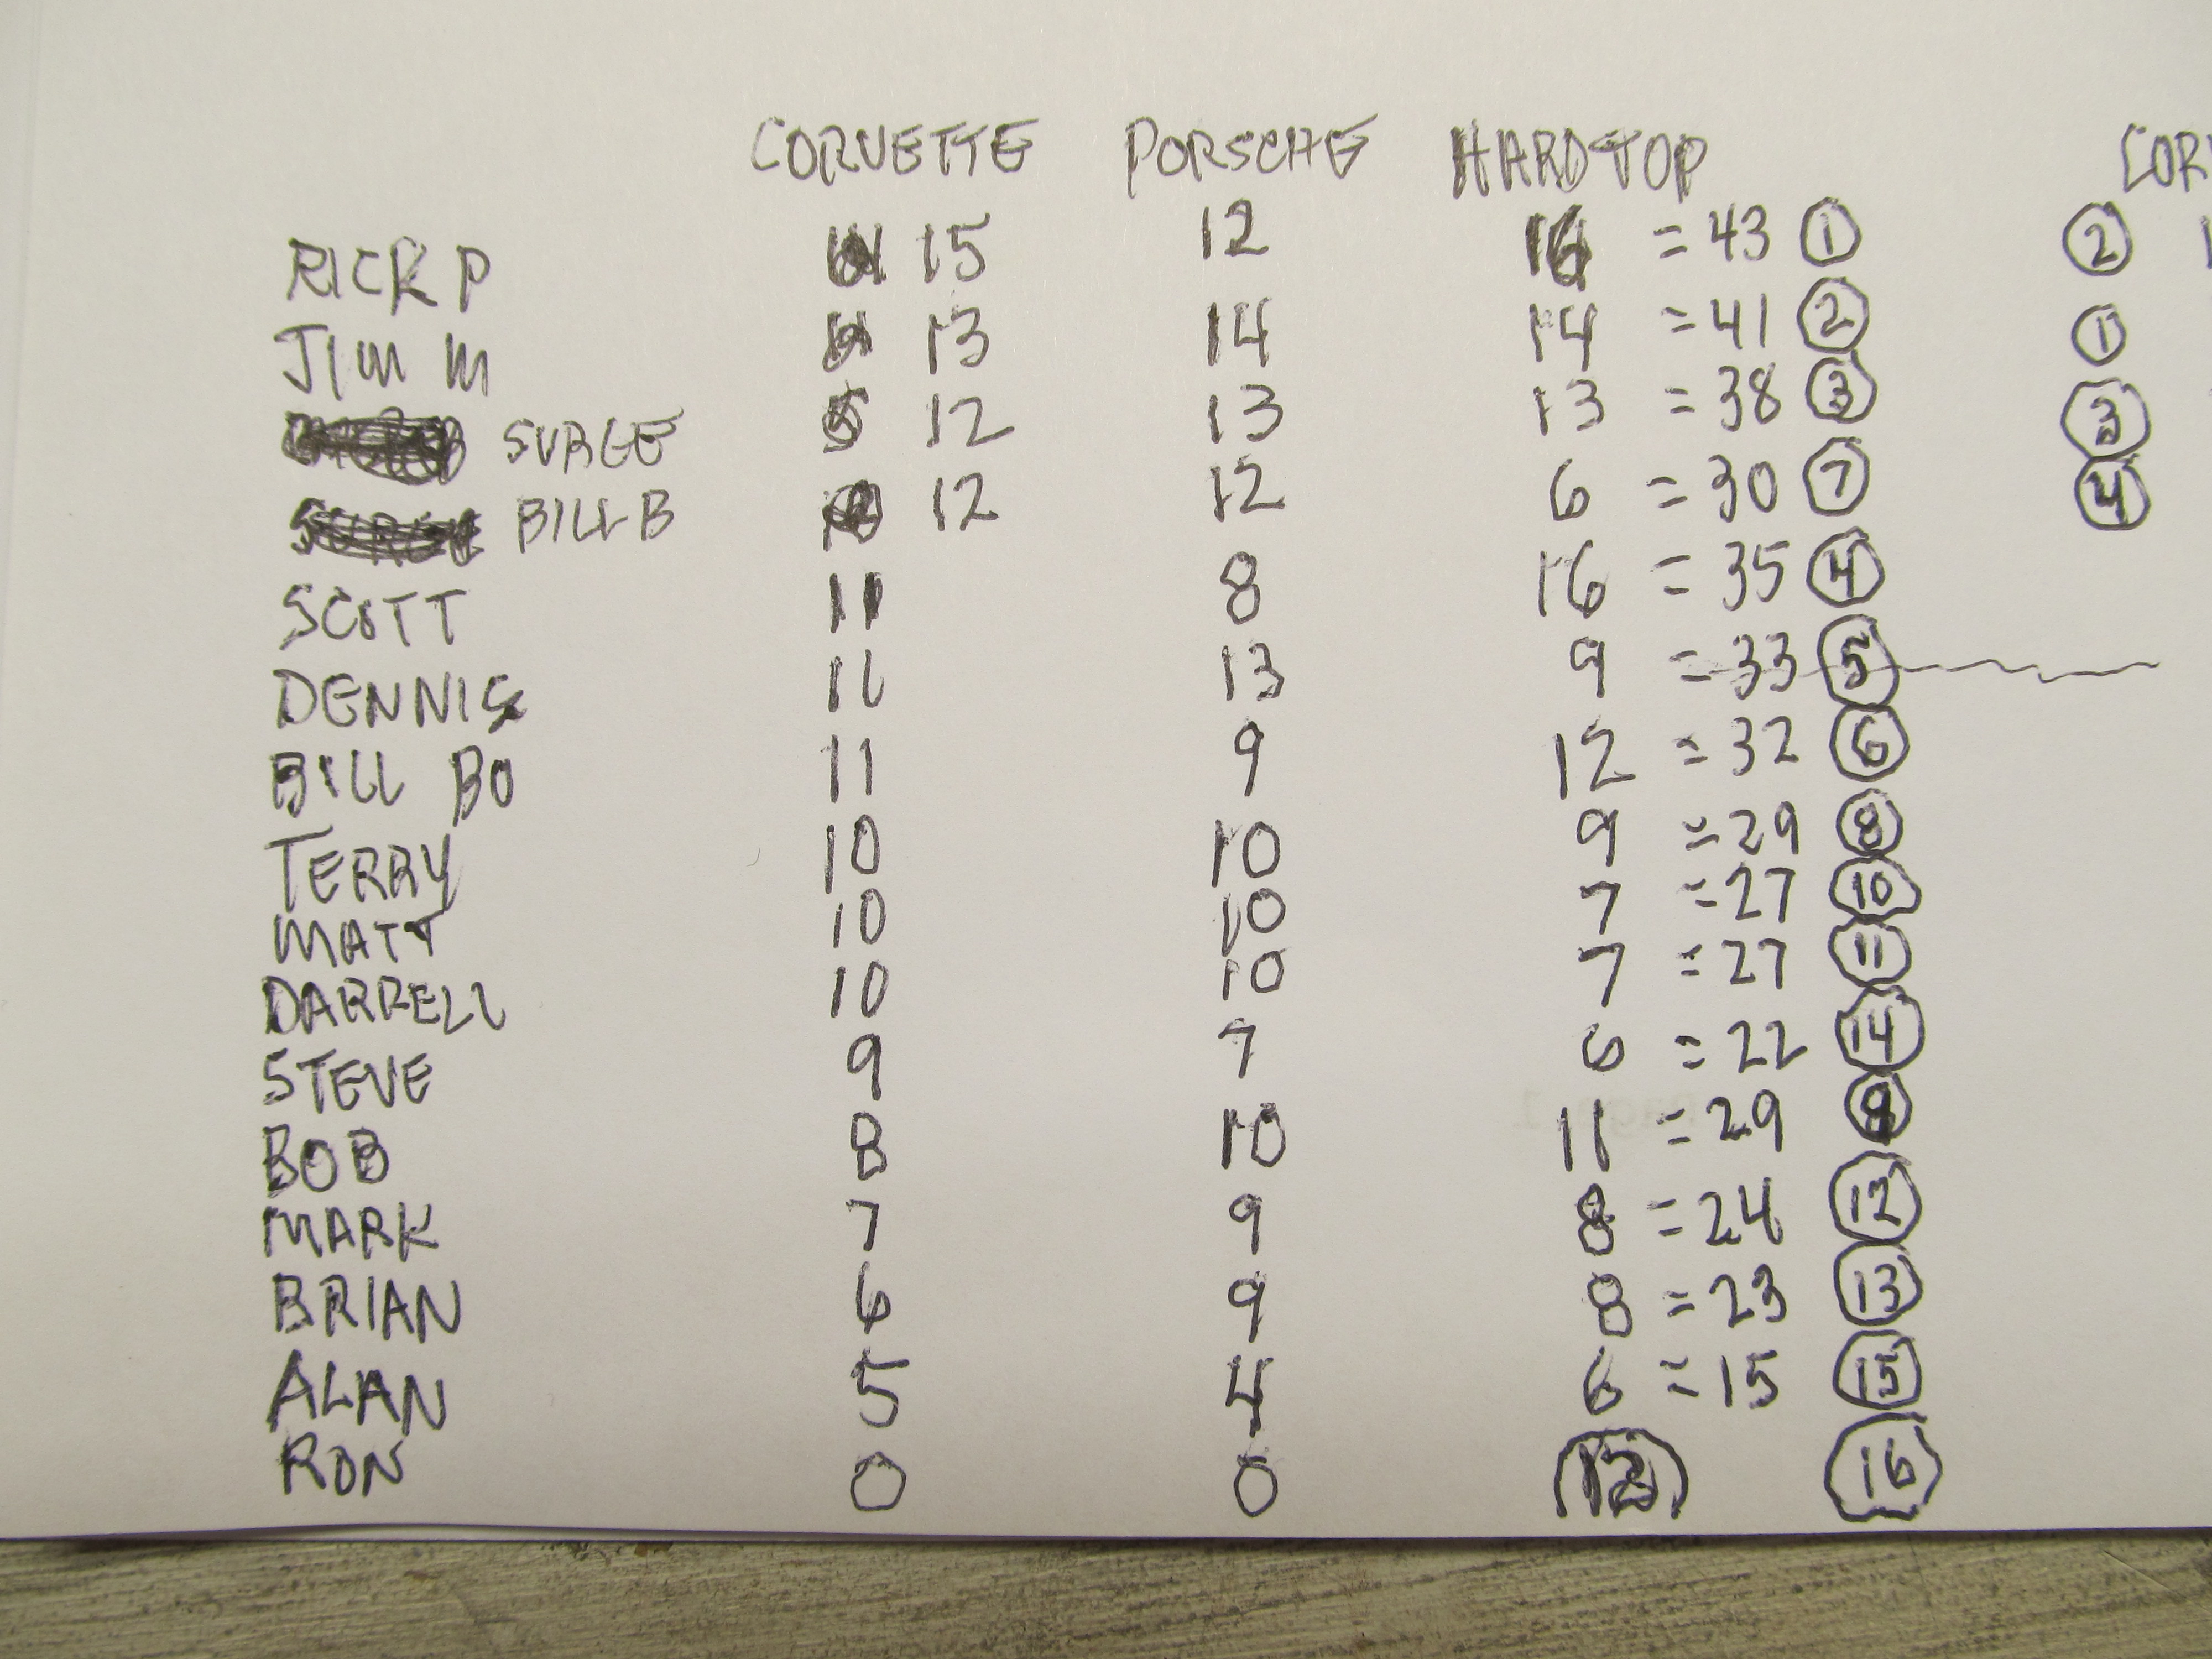 CORVETTE PORSCHE HARDTOP COR
RICK P 15 12 16 = 43 1 2
JIM M 13 14 14 = 41 2 1
SURGE 12 13 13 = 38 3 3
BILL B 12 12 6 = 30 7 4
SCOTT 11 8 16 = 35 4
DENNIS 11 13 9 = 33 5
BILL BO 11 9 12 = 32 6
TERRY 10 10 9 = 29 8
MATT 10 10 7 = 27 10
DARRELL 10 10 7 = 27 11
STEVE 9 7 6 = 22 14
BOB 8 10 11 = 29 9
MARK 7 9 8 = 24 12
BRIAN 6 9 8 = 23 13
ALAN 5 4 6 = 15 15
RON 0 0 12 16